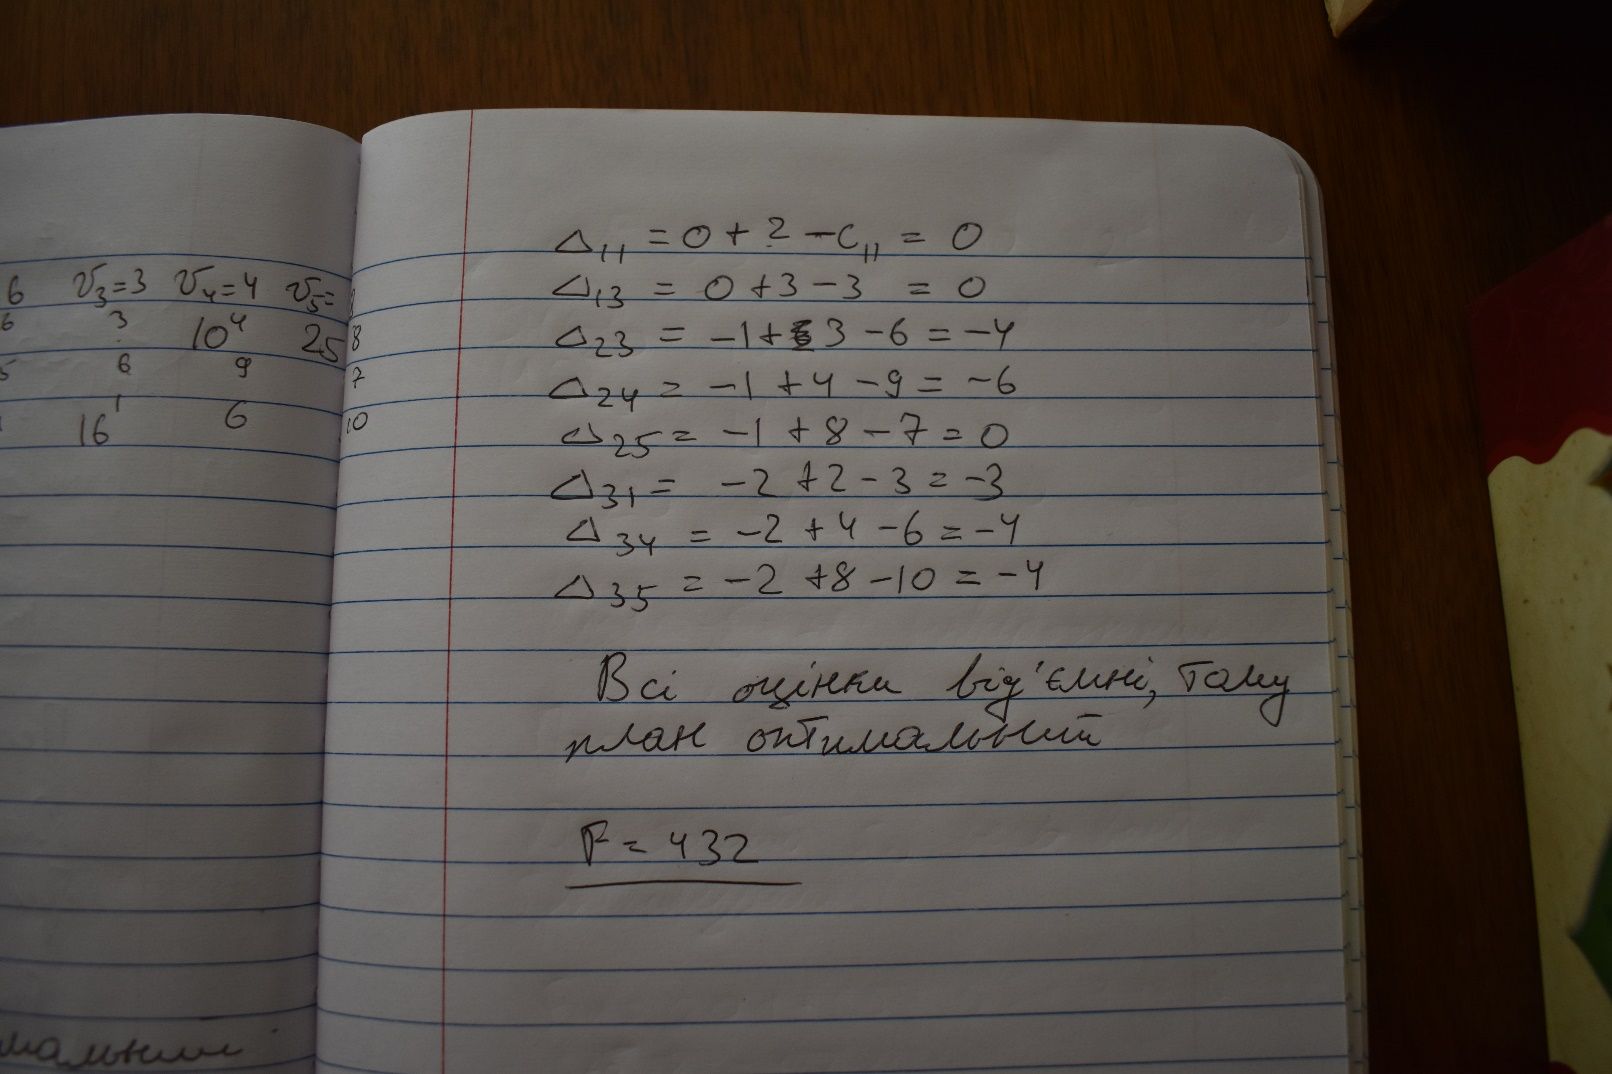 6 v₃=3 v₄=4 v₅=8
6 3 10⁴ 25 8
5 6 9 7
16¹ 6 10
мальний
Δ₁₁ = 0 + 2 - C₁₁ = 0
Δ₁₃ = 0 + 3 - 3 = 0
Δ₂₃ = -1 + 3 - 6 = -4
Δ₂₄ = -1 + 4 - 9 = -6
Δ₂₅ = -1 + 8 - 7 = 0
Δ₃₁ = -2 + 2 - 3 = -3
Δ₃₄ = -2 + 4 - 6 = -4
Δ₃₅ = -2 + 8 - 10 = -4
Всі оцінки від'ємні, тому
план оптимальний
F = 432